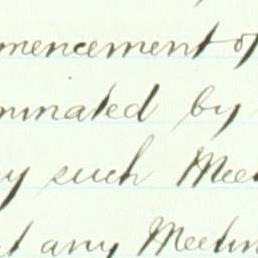 mencement of
minated by
ny such Mee
t any Meetin